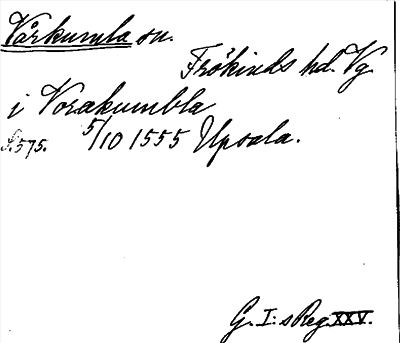 Vårkumla sn.
Frökinds hd. Vg.
i Vorakumbla
S.575. 5/10 1555 Upsala.
G. I:s Reg. XXV.